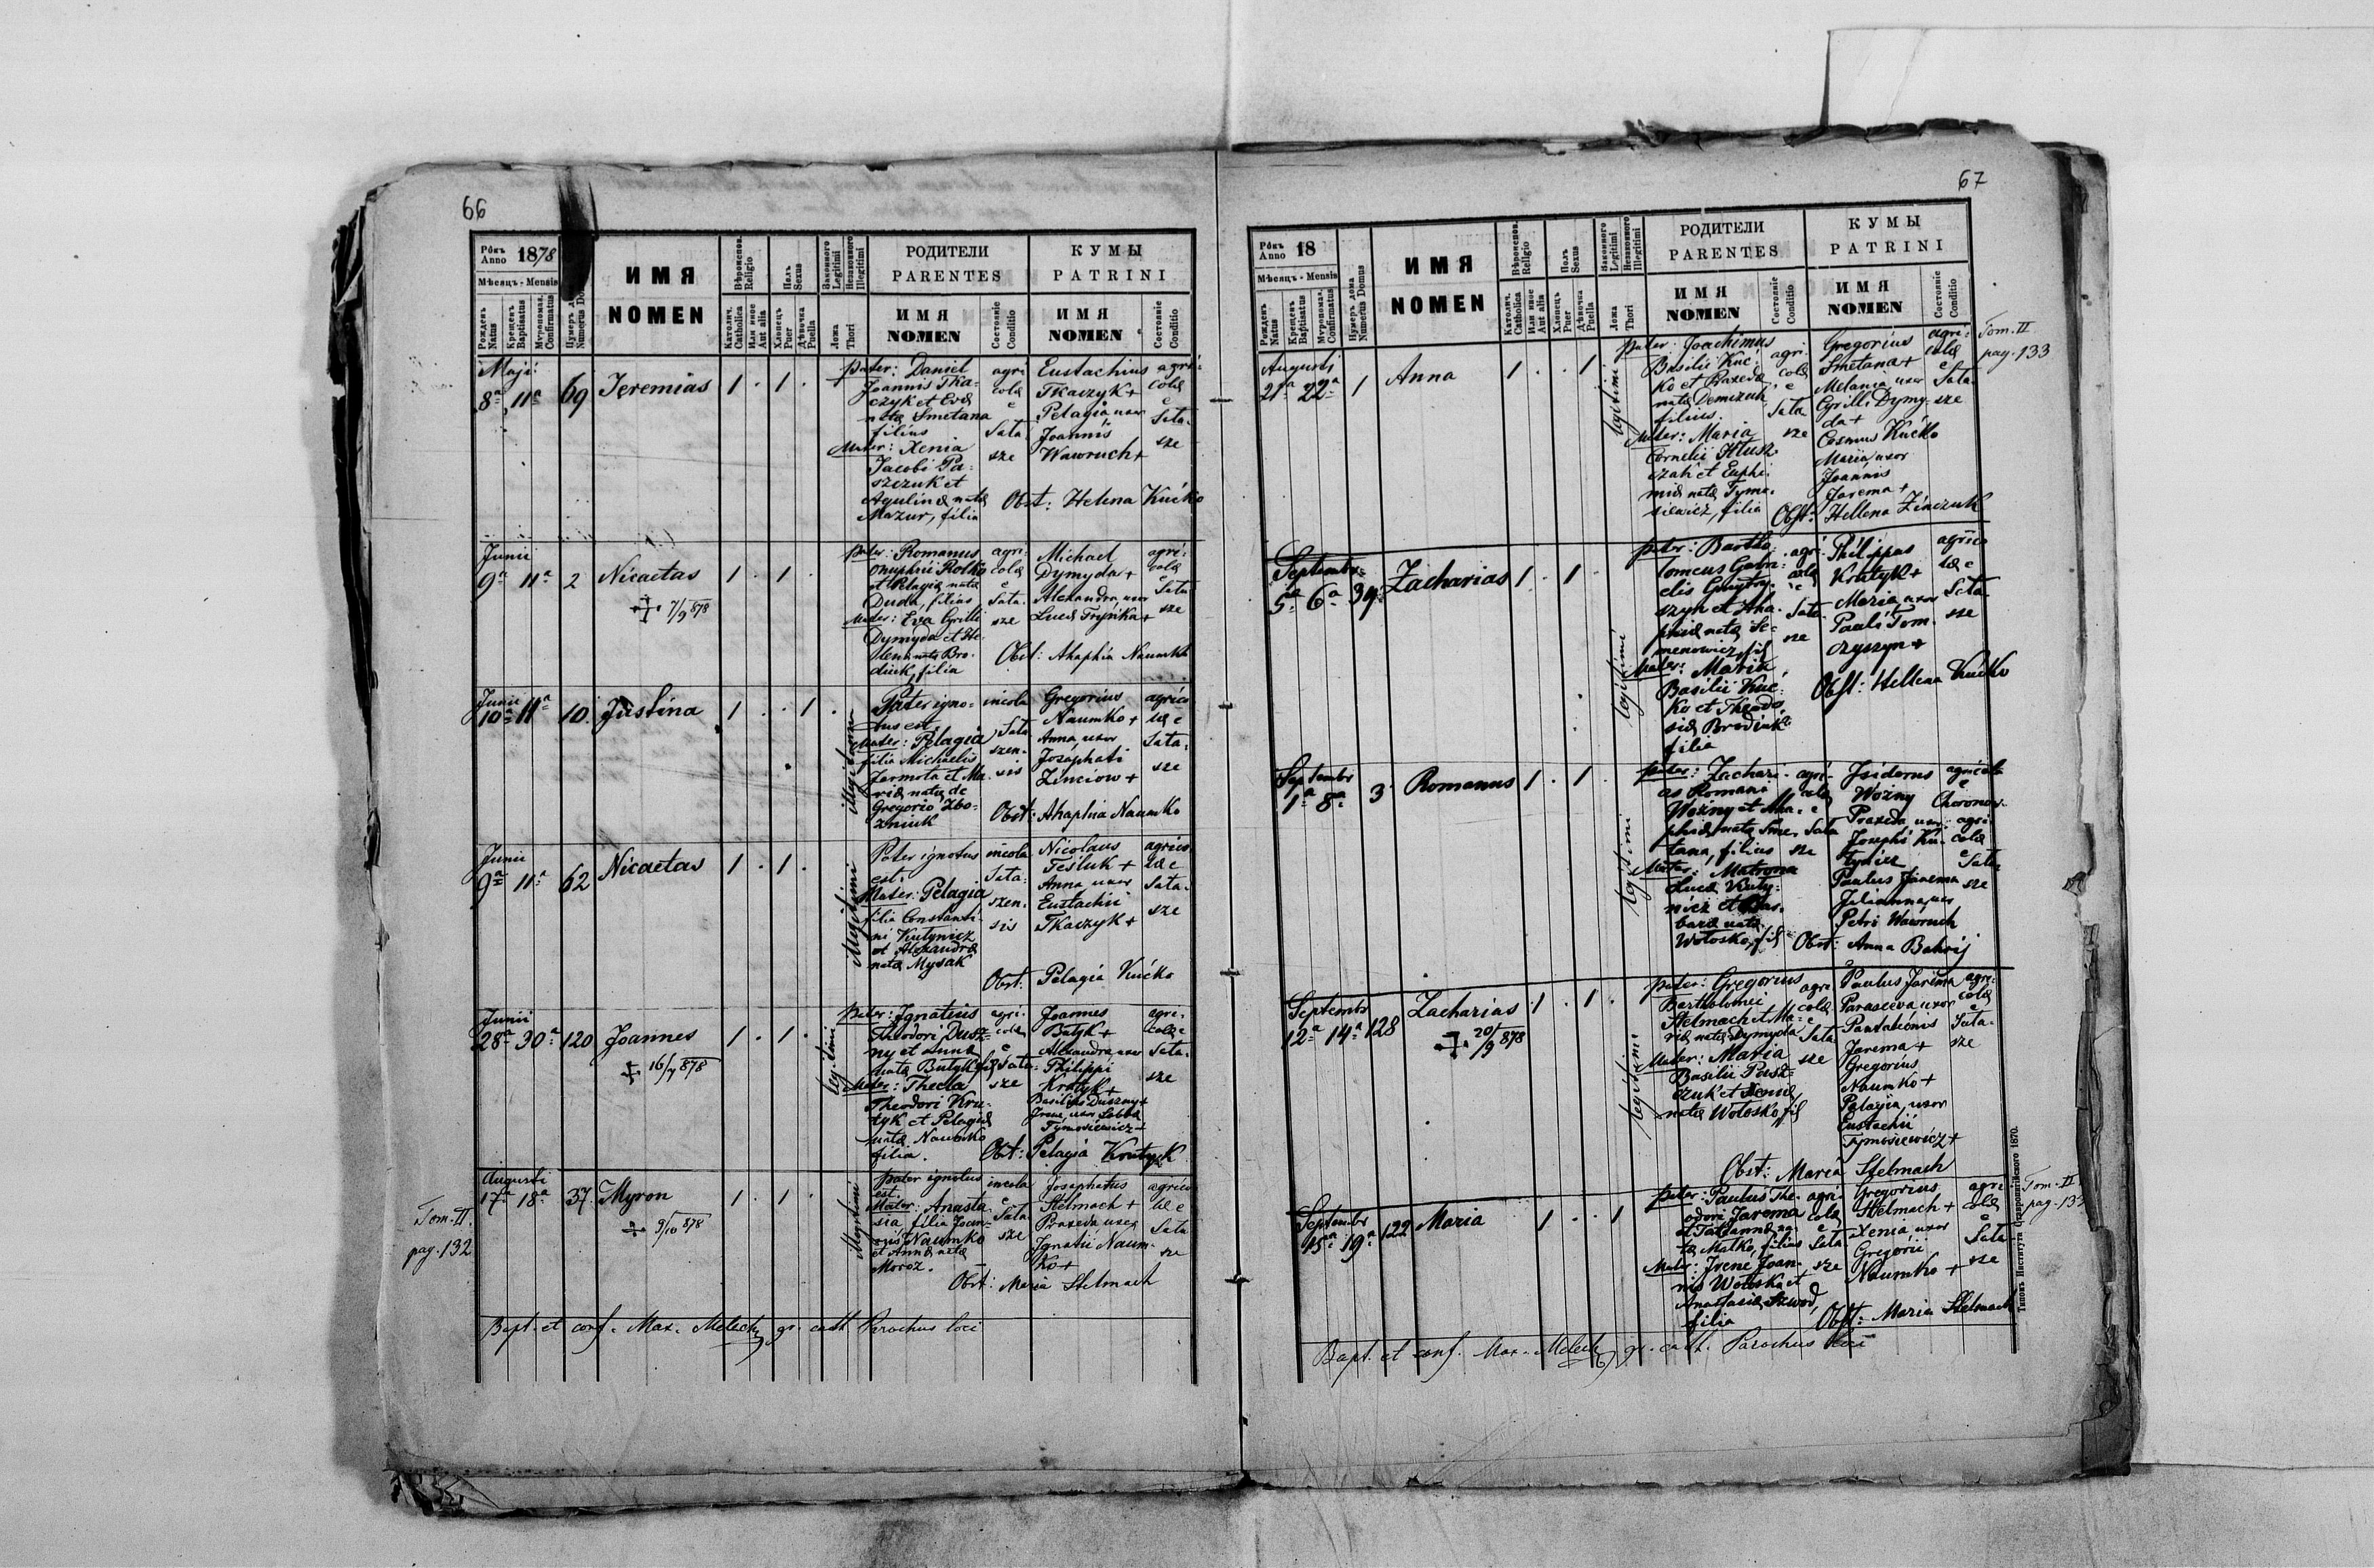 66
Рôкъ Anno 1878
Мѣсяцъ - Mensis
Рожденъ Natus
Крещенъ Baptisatus
Мѵропомаз. Confirmatus
Numerus Domus
ИМЯ
NOMEN
Вѣроисповѣд. Religio
Католич. Catholica
Или иное Aut alia
Полъ Sexus
Хлопецъ Puer
Дѣвочка Puella
Законного Legitimi
Незаконного Illegitimi
Ложа Thori
РОДИТЕЛИ
PARENTES
ИМЯ
NOMEN
Состояніе Conditio
КУМЫ
PATRINI
ИМЯ
NOMEN
Состояніе Conditio
Maji
8ª 11ª 69 Jeremias 1 . 1 .
pater: Daniel
Joannis Tka-
czyk et Evæ
natæ Smetana
filius
Mater: Xenia
Jacobi Pa-
szczuk et
Aqulinæ natæ
Mazur, filia
agri
colæ
e
Sata
sze
Eustachius
Tkaczyk +
Pelagia uxor
Joannis
Wawruch +
agri-
colæ
e
Sata-
sze
Obst: Helena Kućko
Junii
9ª 11ª 2 Nicaetas 1 . 1 .
7/9 878
pater: Romanus
Onuphrii Rotko
et Pelagiæ natæ
Duda, filius
Mater: Eva Cyrilli
Dymyda et He-
lenæ natæ Bro-
diuk, filia
agri-
colæ
e
Sata-
sze
Michael
Dymyda +
Alexandra uxor
Lucæ Tryńka +
agri-
colæ
e
Sata-
sze
Obst: Ahaphia Naumko
Junii
10ª 11ª 10. Justina 1 . . 1 .
illegitimi
Pater igno-
tus est.
Mater: Pelagia
filia Michaelis
Jarmota et Ma-
riæ natæ de
Gregorio Zbo-
zniuk
incola
Sata-
szen-
sis
Gregorius
Naumko +
Anna uxor
Josaphati
Zinciow +
agrico
læ e
Sata-
sze
Obst: Ahaphia Naumko
Junii
9ª 11ª 62 Nicaetas 1 . 1 .
illegitimi
Pater ignotus
est.
Mater: Pelagia
filia Constanti-
ni Kutynicz
et Alexandræ
natæ Mysak
incola
Sata-
szen-
sis
Nicolaus
Tesluk +
Anna uxor
Eustachii
Tkaczyk +
agrico
læ e
Sata-
sze
Obst: Pelagia Kućko
Junii
28ª 30ª 120 Joannes 1 . 1 .
16/7 878
legitimi
pater: Ignatius
Theodori Dusz-
ny et Annæ
natæ Butyk fil
Mater: Thecla
Theodori Kru-
tyk et Pelagiæ
natæ Naumko
filia.
agri-
colæ
e
Sata-
sze
Joannes
Butyk +
Alexandra uxor
Philippi
Krutyk +
Basilius Duszny +
Irene, uxor
Tymosiewicz +
agri-
colæ e
Sata-
sze
Obst: Pelagia Krutyk
Augusti
17ª 18ª 37. Myron 1 . 1 .
9/10 878
Tom. II.
pag. 132
illegitimi
pater ignotus
est.
Mater: Anasta-
sia filia Joan-
nis Naumko
et Annæ natæ
Moroz.
incola
e
Sata-
sze
Josaphatus
Stelmach +
Praxeda uxor
Ignatii Naum-
ko +
agrico
læ e
Sata
sze
Obst: Maria Stelmach
Bapt. et conf. Max. Melech gr. cath Parochus loci
67
Рôкъ Anno 18
Мѣсяцъ - Mensis
Рожденъ Natus
Крещенъ Baptisatus
Мѵропомаз. Confirmatus
Нумеръ дома Numerus Domus
ИМЯ
NOMEN
Вѣроисповѣд. Religio
Католич. Catholica
Или иное Aut alia
Полъ Sexus
Хлопецъ Puer
Дѣвочка Puella
Законного Legitimi
Незаконного Illegitimi
Ложа Thori
РОДИТЕЛИ
PARENTES
ИМЯ
NOMEN
Состояніе Conditio
КУМЫ
PATRINI
ИМЯ
NOMEN
Состояніе Conditio
Augusti
21ª 22ª 1 Anna 1 . . 1
legitimi
pater: Joachimus
Basilii Kuć-
ko et Praxedæ
natæ Demczuk
filius.
Mater: Maria
Cornelii Hlusz-
czak et Euphi-
miæ natæ Tymo-
siewicz, filia
agri-
colæ
e
Sata
sze
Gregorius
Smetana +
Melania uxor
Cyrilli Dymy-
da +
Cosmus Kućko
Maria uxor
Joannis
Jarema +
agri-
colæ
e
Sata-
sze
Tom. II
pag. 133
Obst: Hellena Zinczuk
Septembr.
5ª 6ª 39. Zacharias 1 . 1 .
legitimi
pater: Bartho-
lomeus Gabri-
elis
szyn et Aha-
phiæ natæ Se-
menowicz, fil
Mater: Maria
Basilii Kuć-
ko et Theodo-
siæ Brodiuk
filia
agri-
colæ
e
Sata-
sze
Philippus
Krutyk +
Maria uxor
Pauli Tom-
czyszyn +
agrico
læ e
Sata-
sze
Obst: Hellena Kućko
Septembr
1ª 8ª 3 Romanus 1 . 1 .
legitimi
pater: Zachari-
as Romani
Woźny et Aha-
phiæ natæ Sme-
tana, filius
Mater: Matrona
Lucæ Kuty-
nicz et Bar-
baræ natæ
Wołosko, fil
agri-
colæ
e
Sata
sze
Isidorus
Woźny
Praxeda uxor
Josephi Ku-
tynicz
Paulus Jarema
Julianna uxor
Petri Wawruch
agricola
e
agri-
colæ
e
Sata-
sze
Obst: Anna Bahrij
Septembr
12ª 14ª 128 Zacharias 1 . 1 .
20/9 878
legitimi
pater: Gregorius
Bartholomei
Stelmach et Ma-
riæ natæ Dymyda
Mater: Maria
Basilii Paszz-
czuk et Xeniæ
natæ Wołosko, fil
agri
colæ
e
Sata
sze
Paulus Jarema
Parasceva uxor
Pantaleonis
Jarema +
Gregorius
Naumko +
Pelagia, uxor
Eustachii
Tymosiewicz +
agri-
colæ
e
Sata-
sze
Obst: Maria Stelmach
Septembr
15ª 19ª 122 Maria 1 . . 1
pater: Paulus The-
odori Jarema
et Tatiannæ na-
tæ Matko, filius
Mater: Irene Joan-
nis Wołosko et
Anastasiæ Szwod,
filia
agri-
colæ
e
Sata-
sze
Gregorius
Stelmach +
Xenia uxor
Gregorii
Naumko +
agri
colæ
e
Sata
sze
Tom. II
pag. 133
Obst: Maria Stelmach
Bapt. et conf. Max. Melech gr. cath. Parochus loci
Типомъ Института Ставропигійского 1870.